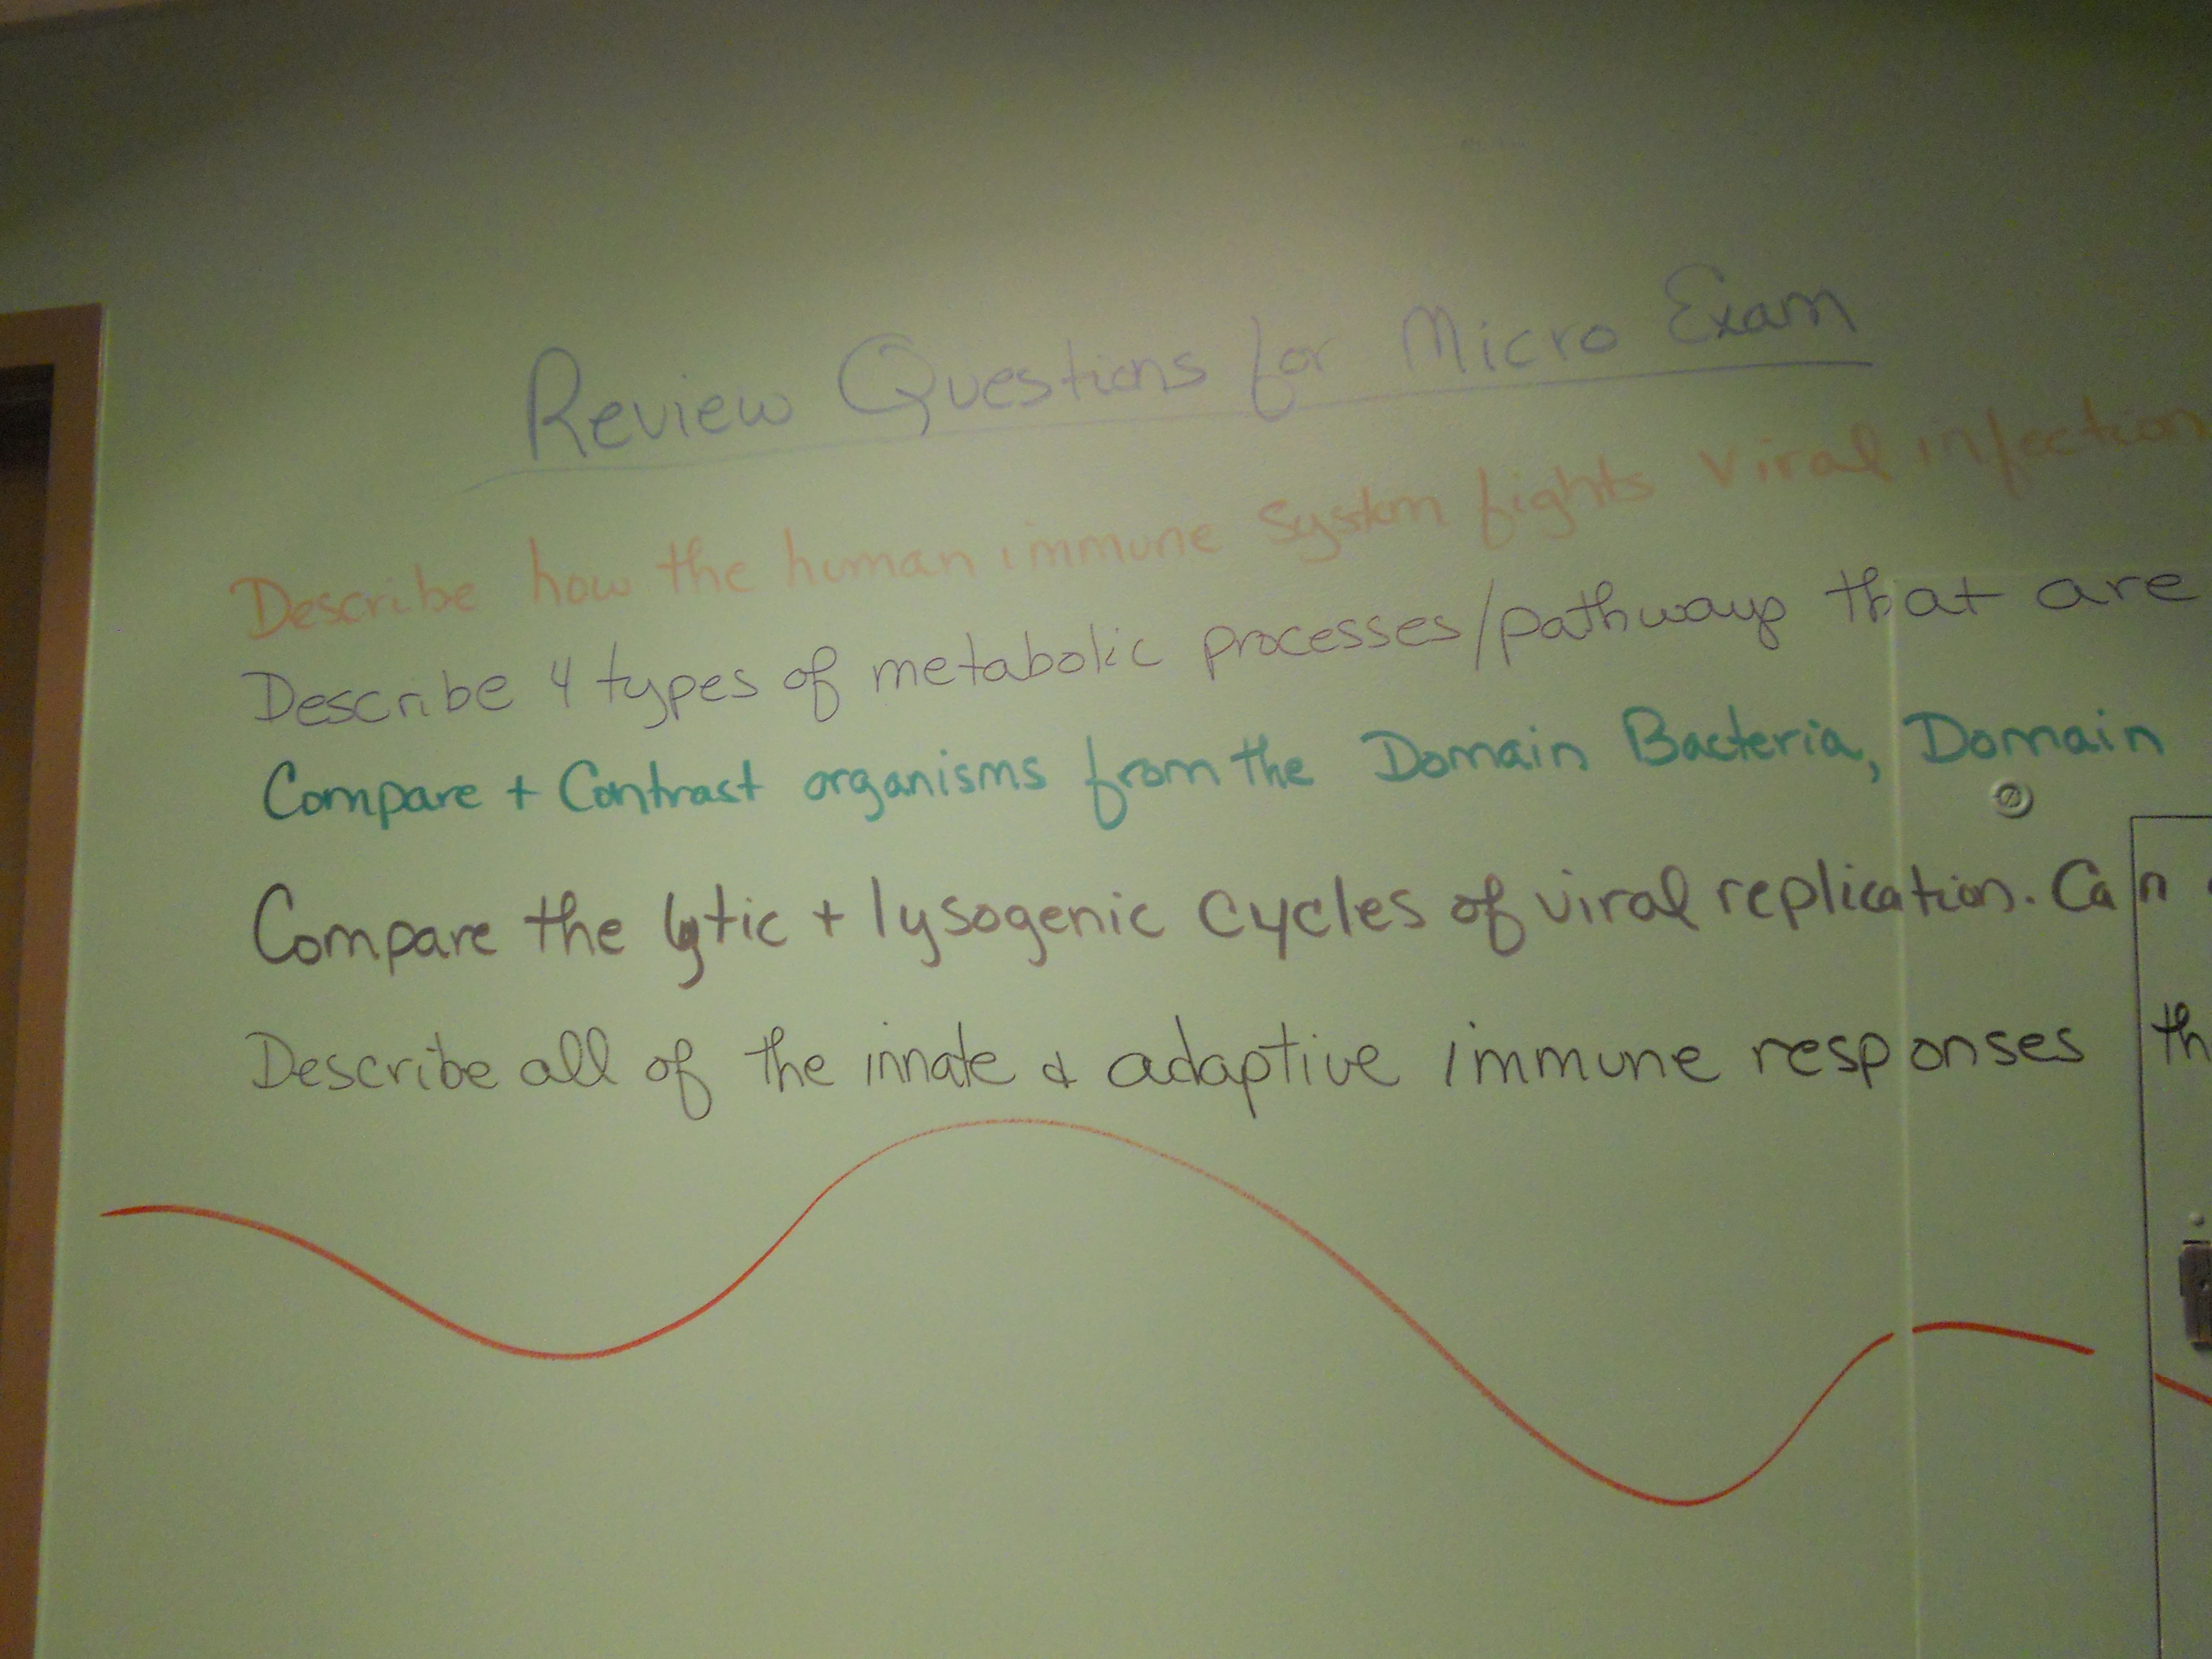 Review Questions for Micro Exam
Describe how the human immune system fights viral infection
Describe 4 types of metabolic processes/pathways that are
Compare + Contrast organisms from the Domain Bacteria, Domain
Compare the lytic + lysogenic cycles of viral replication. Can
Describe all of the innate & adaptive immune responses th